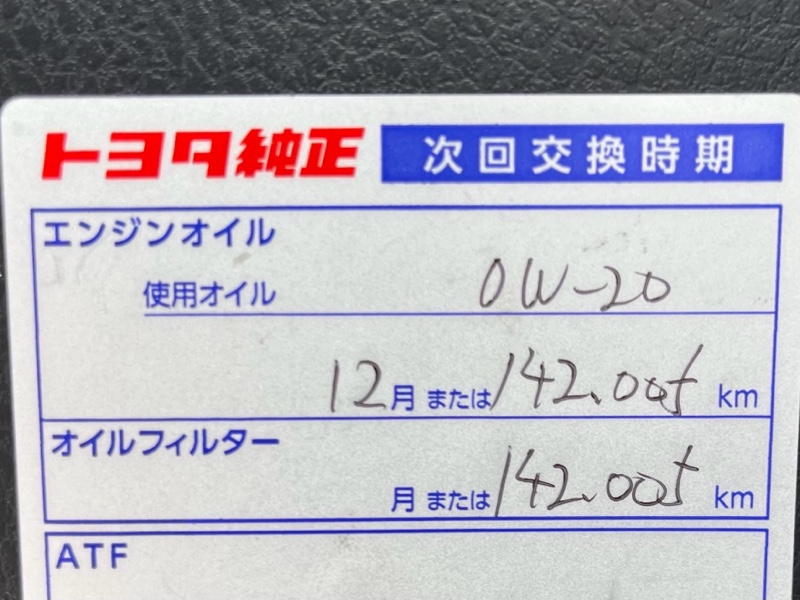 トヨタ純正 次回交換時期
エンジンオイル
使用オイル 0W-20
12月 または 142.005 km
オイルフィルター
月 または 142.005 km
ATF